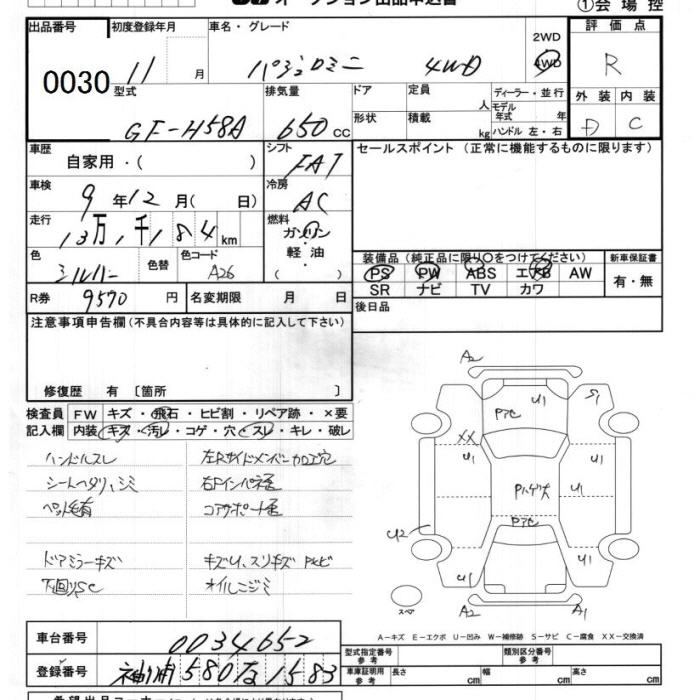 オークション出品申込書
①会場控
出品番号 0030
初度登録年月 11 月
車名・グレード パジェロミニ 4WD
2WD
4WD
評価点 R
外装 D
内装 C
型式 GF-H58A
排気量 650 cc
ドア
形状
定員 人
積載 kg
ディーラー・並行
モデル年式 年
ハンドル 左・右
車歴 自家用・( )
シフト FAT
セールスポイント (正常に機能するものに限ります)
車検 9年12月( 日)
冷房 AC
走行 13万1千184km
燃料 ガソリン
軽油
( )
色 シルバー
色替
色コード A26
装備品(純正品に限り○をつけてください)
PS PW ABS エアB AW
SR ナビ TV カワ
新車保証書
有・無
R券 9570 円
名変期限 月 日
後日品
注意事項申告欄(不具合内容等は具体的に記入して下さい)
修復歴 有〔箇所 〕
検査員 FW キズ・飛石・ヒビ割・リペア跡・×要
記入欄 内装 キズ・汚レ・コゲ・穴・スレ・キレ・破レ
ハンドルスレ
シートヘタリ、シミ
ペット毛有
左Rサイドメンバー加工穴
右Fインパネ歪
コアサポート歪
ドアミラーキズ
下回りSC
キズU、スリキズ Pヒビ
オイルニジミ
A2
U1
Pアセ
S1
XX
U1
U1
Pハゲ大
U1
Pアセ
U2
U1
U1
スペ
A2
A1
A-キズ E-エクボ U-凹み W-補修跡 S-サビ C-腐食 XX-交換済
車台番号 0034652
登録番号 袖ヶ浦580な1583
型式指定番号
参考
類別区分番号
参考
車庫証明用
参考
長さ cm
幅 cm
高さ cm